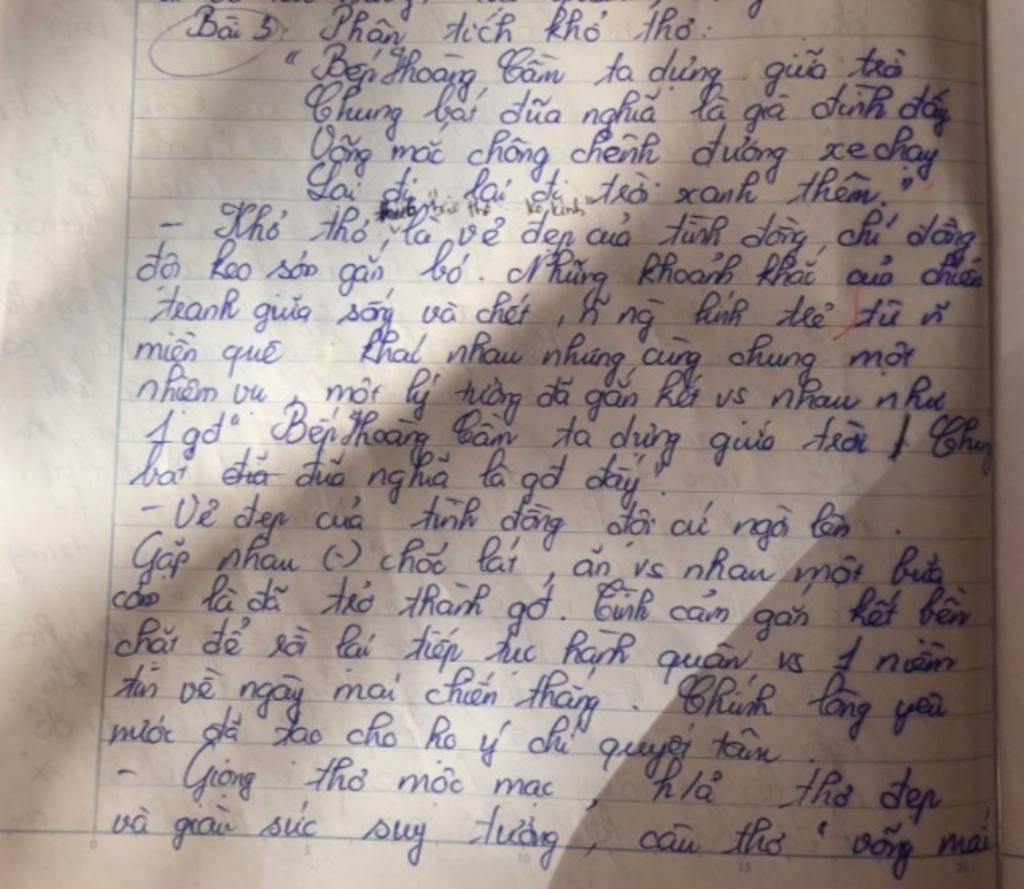 Bài 3: Phân tích khổ thơ:
"Bếp Hoàng Cầm ta dựng giữa trời
Chung bát đũa nghĩa là gia đình đấy
Võng mắc chông chênh đường xe chạy
Lại đi, lại đi trời xanh thêm."
- Khổ thơ, là vẻ đẹp của tình đồng chí đồng
đội keo sơn gắn bó. Những khoảnh khắc của chiến
tranh giữa sống và chết, n~ ng lính trẻ từ n~
miền quê khác nhau nhưng cùng chung một
nhiệm vụ, một lý tưởng đã gắn kết vs nhau như
1 gđ "Bếp Hoàng Cầm ta dựng giữa trời / Chung
bát đũa nghĩa là gđ đấy".
- Vẻ đẹp của tình đồng đội cứ ngời lên.
Gặp nhau (-) chốc lát, ăn vs nhau một bữa
cơm là đã trở thành gđ. Tình cảm gắn kết bền
chặt để rồi lại tiếp tục hành quân vs 1 niềm
tin về ngày mai chiến thắng. Chính lòng yêu
nước đã tạo cho họ ý chí quyết tâm.
- Giọng thơ mộc mạc, h/ả thơ đẹp
và giàu sức suy tưởng, câu thơ "võng mắc